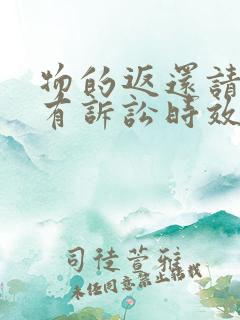 物的返還請
有訴訟時效
司徒萱雅
未经同意禁止转载